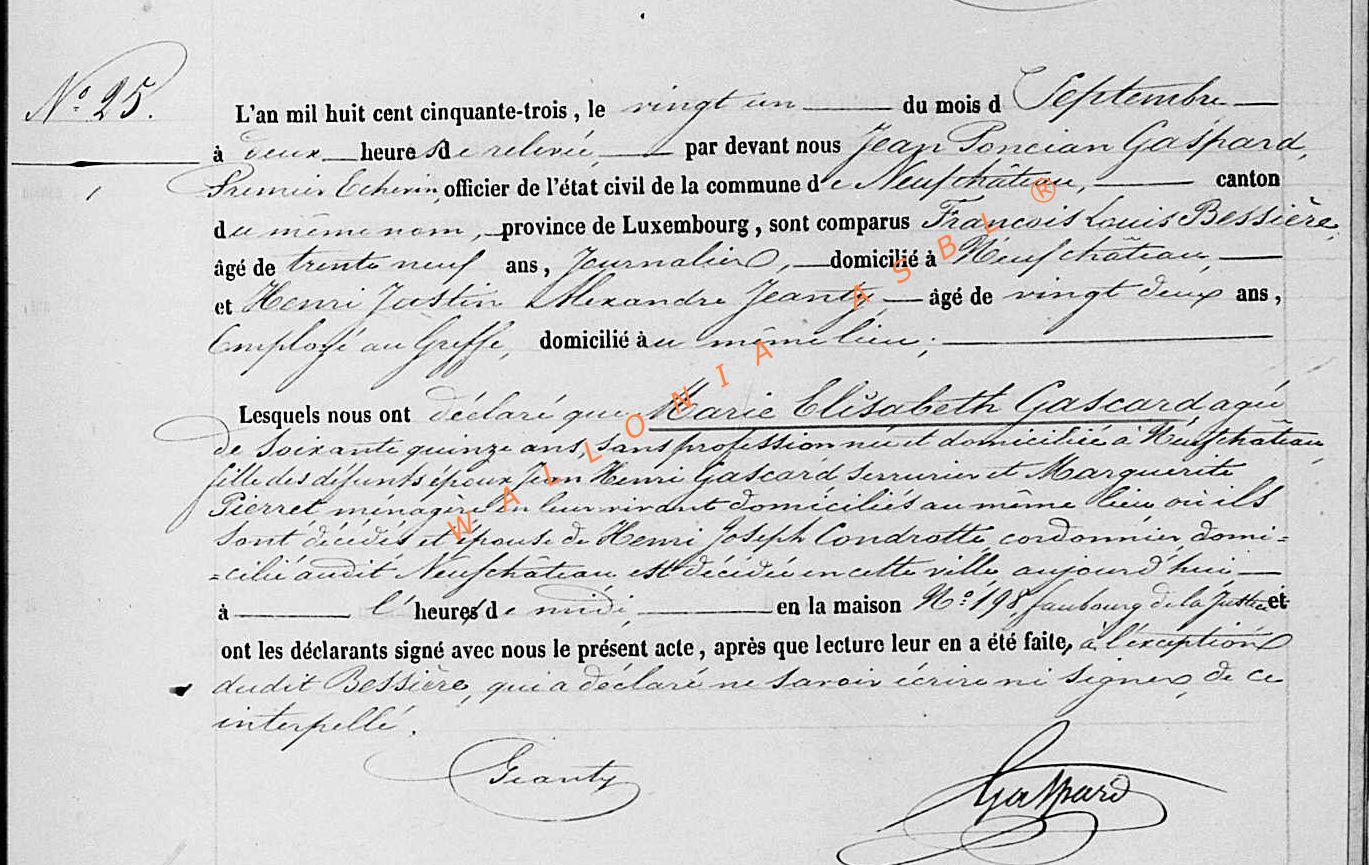 Nº 25.
L'an mil huit cent cinquante-trois, le vingt un du mois d Septembre
à deux heures de relevée, par devant nous Jean Poncian Gaspard,
Premier Echevin, officier de l'état civil de la commune de Neufchâteau, canton
du même nom, province de Luxembourg, sont comparus François Louis Bessière,
âgé de trente neuf ans, Journalier, domicilié à Neufchâteau,
et Henri Justin Alexandre Jeanty âgé de vingt deux ans,
Employé au Greffe, domicilié au même lieu;
Lesquels nous ont déclaré que Marie Elisabeth Gascard agée
de soixante quinze ans, sans profession née et domiciliée à Neufchâteau,
fille des défunts époux Jean Henri Gascard serrurier et Marguerite
Pierret ménagère en leur vivant domiciliés au même lieu où ils
sont décédés et épouse de Henri Joseph Condrotte, cordonnier, domi=
=cilié audit Neufchâteau est décédée en cette ville aujourd'hui
à l'heure de midi, en la maison Nº 198 faubourg de la Justice et
ont les déclarants signé avec nous le présent acte, après que lecture leur en a été faite, à l'exception
dudit Bessière, qui a déclaré ne savoir écrire ni signer, de ce
interpellé.
Jeanty Gaspard
WALLONIA ASBL ®